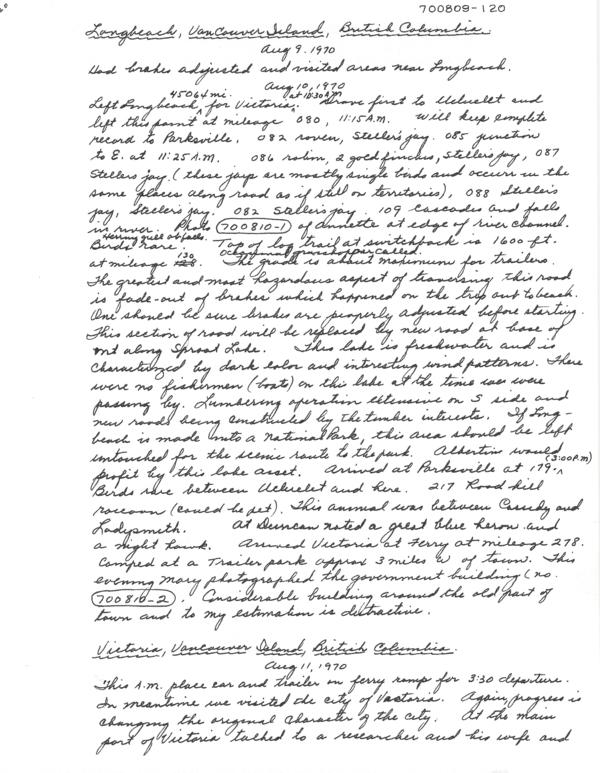 700809-120
Longbeach, Vancouver Island, British Columbia.
Aug 9. 1970
Had brakes adjusted and visited areas near Longbeach.
Aug 10, 1970
45064 mi. at 10:30 AM
Left Longbeach for Victoria. Drove first to Ucluelet and
left this point at mileage 080, 11:15 A.M. Will keep complete
record to Parksville. 082 raven, Steller's jay. 085 junction
to E. at 11:25 A.M. 086 robin, 2 gold finches, Steller's jay, 087
Steller's jay (these jays are mostly single birds and occur in the
same places along road as if still on territories), 088 Steller's
jay, Steller's jay. 082 Steller's jay. 109 Cascades and falls
in river. Photo 700810-1 of Annette at edge of river channel.
Herring gull at falls.
Birds rare. Top of log trail at switchback is 1600 ft.
at mileage 130. The grade is about maximum for trailers.
The greatest and most hazardous aspect of traversing this road
is fade-out of brakes which happened on the trip out to beach.
One should be sure brakes are properly adjusted before starting.
This section of road will be replaced by new road at base of
mt along Sproat Lake. This lake is freshwater and is
characterized by dark color and interesting wind patterns. There
were no fishermen (boats) on this lake at the time we were
passing by. Lumbering operation extensive on S side and
new roads being constructed by the timber interests. If Long-
beach is made into a National Park, this area should be left
untouched for the scenic route to the park. Albertin would
profit by this lake asset. Arrived at Parksville at 179. (3:00 P.M)
Birds rare between Ucluelet and here. 217 Road kill
raccoon (could be pet). This animal was between Cassidy and
Ladysmith. At Duncan noted a great blue heron and
a night hawk. Arrived Victoria at Ferry at mileage 278.
Camped at a Trailer park approx 3 miles W of town. This
evening Mary photographed the government building (no.
700810-2). Considerable building around the old part of
town and to my estimation is distractive.
Victoria, Vancouver Island, British Columbia.
Aug 11, 1970
This A.M. place car and trailer on ferry ramp for 3:30 departure.
In meantime we visited the city of Victoria. Again, progress is
changing the original character of the city. At the main
port of Victoria talked to a researcher and his wife and